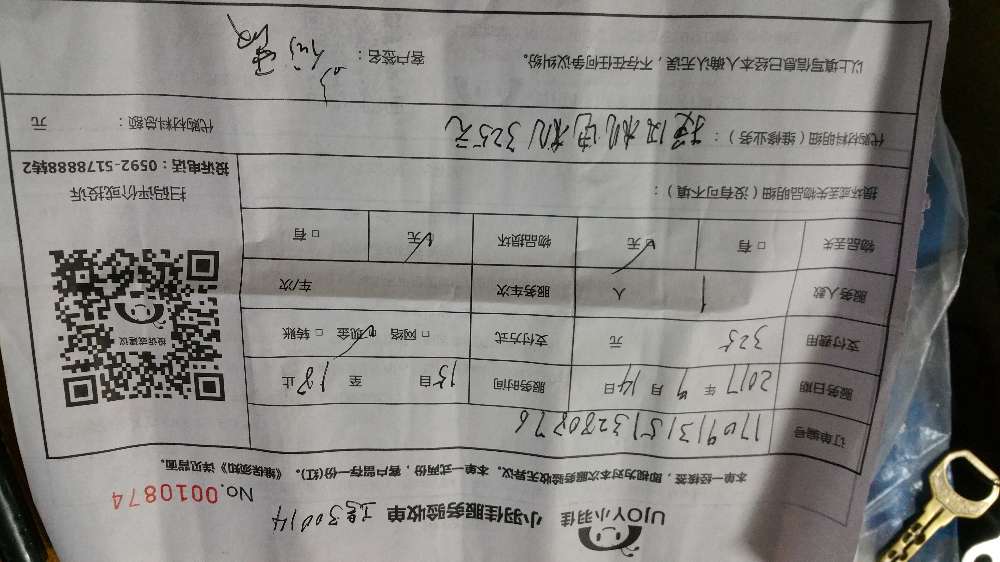 UJOY小羽佳 小羽佳服务验收单 30014
No.0010874
本单一经核签，即视为对本次服务验收无异议。本单一式两份，客户留存一份(红)。《维保须知》详见背面。
订单编号 170913151328087 6
服务日期 2017 年 9 月 14 日 服务时间 15 自 至 18 止
支付费用 325 元 支付方式 □ 网络 ☑ 现金 □ 转账
服务人数 1 人 服务车次 车/次
物品丢失 □ 有 ☑ 无 物品损坏 ☑ 无 □ 有
投诉或建议
扫码评价或投诉
投诉电话：0592-5178888转2
损坏或丢失物品明细（没有可不填）：
代购材料明细（维修业务）： 机电机 325元
代购材料总额： 元
以上填写信息已经本人确认无误，不存在任何争议纠纷。 客户签名：